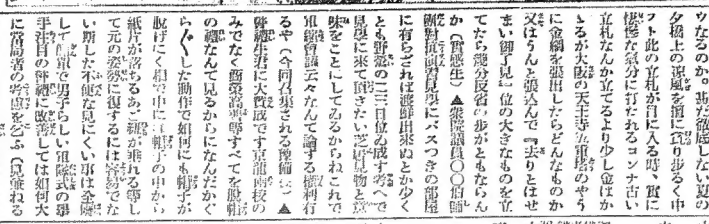 ウなるのか。甚だ徹底しない夏の
夕橋上の涼風を懐に貪り歩るく中
フト此の立札が目に入る時、實に
悽慘な氣分に打たれるアンナ古い
立札なんか立てるより少し金はか
ゝるが大阪の天王寺五重塔のやう
に金網を張出したらどんなものか
又はうんと張込んで『去り はせ
まい御了見』位の大きなものを立
てたら幾分反省の歩がともならん
か(實感生)▲衆院議員〇〇伯爵
對抗演習見學にバスつきの部屋
に有らざれば渡鮮出來ぬとか少く
とも野營の二三日位ゐ成す考へで
見學に來て頂きたい芝居見物と意
味をことにしてゐるからねこれで
軍縮會議云々なんて論ずる權利有
るや(今回召集される豫備)▲
擧禮生君に大賛成です京龍兩校の
みでなく商業高等等すべてを脱帽
の禮なんて見るからになんだかぐ
ら〲した動作で如何にも帽子が
脱げにく相で中には帽子の中から
紙片が落ちるあご紐が垂れる等し
て元の姿勢に復するには容易でな
い斯した不便な見にくい事は全廢
して簡單で男子らしい軍隊式の擧
手注目の禮に改善しては如何大
に當局者の考慮を乞ふ(見兼ねる